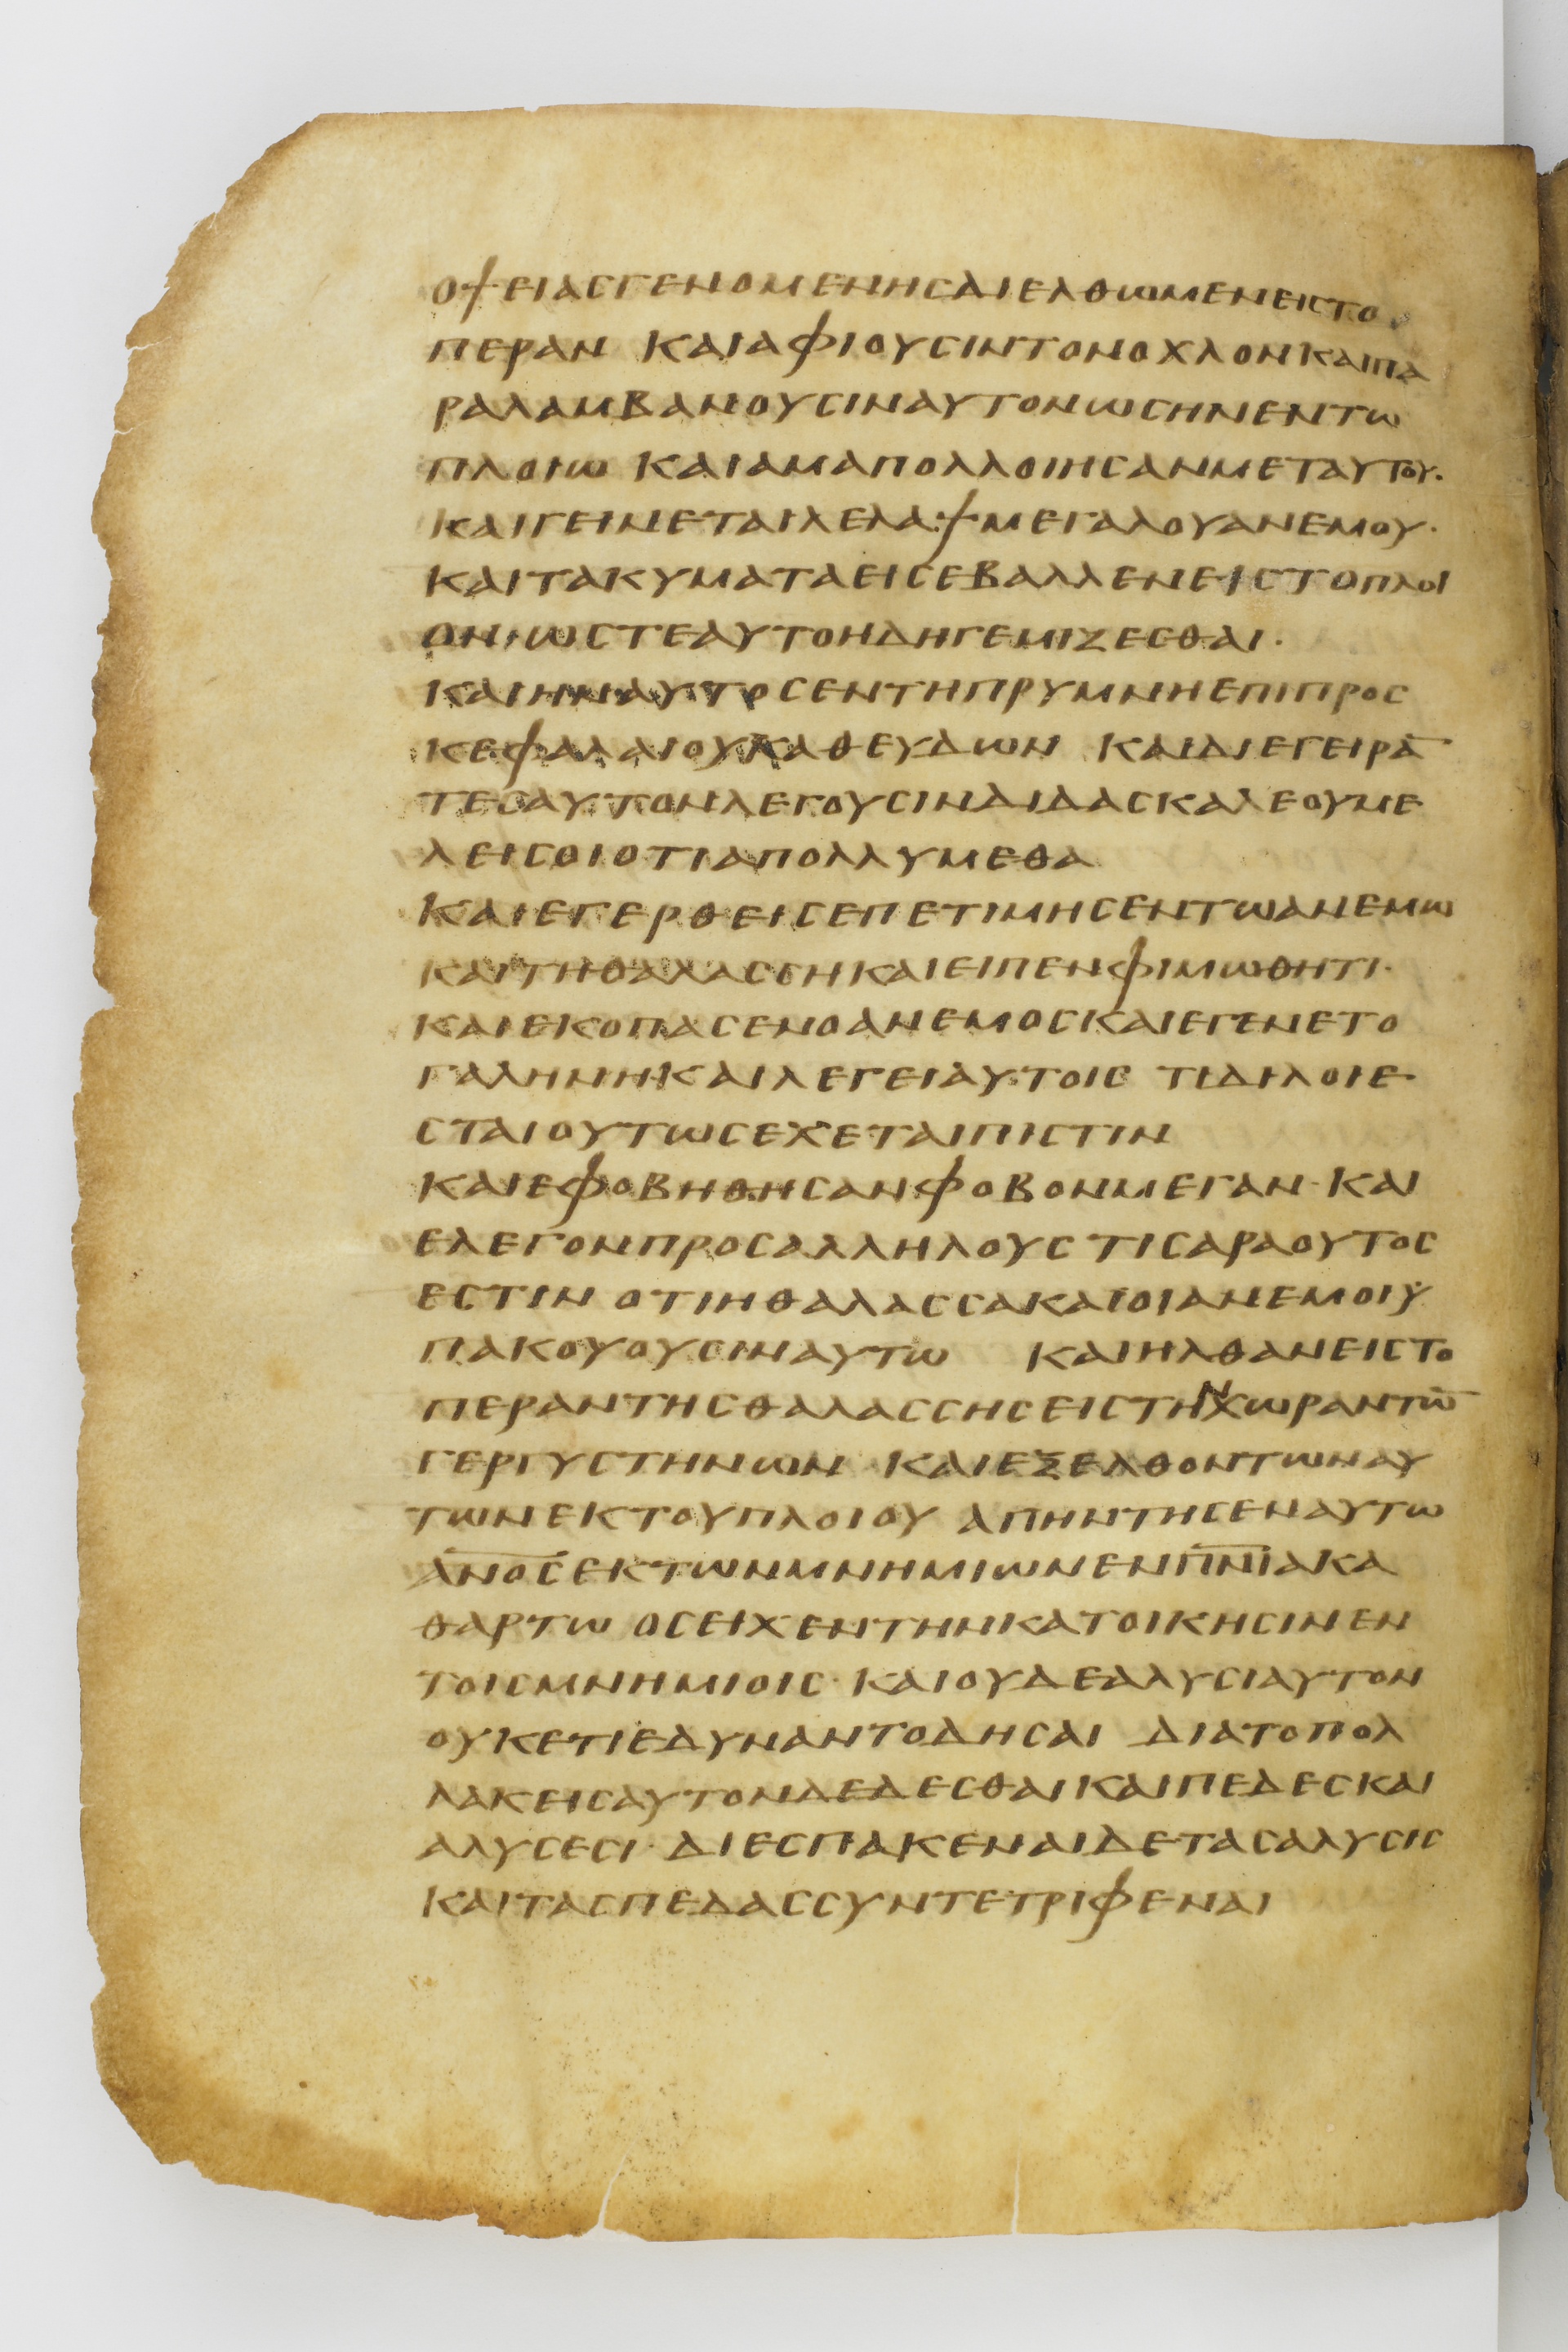 ΟΨΕΙΑΣΓΕΝΟΜΕΝΗΣΔΙΕΛΘΩΜΕΝΕΙΣΤΟ
ΠΕΡΑΝ ΚΑΙΑΦΙΟΥΣΙΝΤΟΝΟΧΛΟΝΚΑΙΠΑ
ΡΑΛΑΜΒΑΝΟΥΣΙΝΑΥΤΟΝΩΣΗΝΕΝΤΩ
ΠΛΟΙΩ ΚΑΙΑΜΑΠΟΛΛΟΙΗΣΑΝΜΕΤΑΥΤΟΥ·
ΚΑΙΓΕΙΝΕΤΑΙΛΕΛΑΨΜΕΓΑΛΟΥΑΝΕΜΟΥ·
ΚΑΙΤΑΚΥΜΑΤΑΕΙΣΕΒΑΛΛΕΝΕΙΣΤΟΠΛΟΙ
ΟΝΩΣΤΕΑΥΤΟΗΔΗΓΕΜΙΖΕΣΘΑΙ·
ΚΑΙΗΝΑΥΤΟΣΕΝΤΗΠΡΥΜΝΗΕΠΙΠΡΟΣ
ΚΕΦΑΛΑΙΟΥΚΑΘΕΥΔΩΝ ΚΑΙΔΙΕΓΕΙΡΑ̅
ΤΕΣΑΥΤΟΝΛΕΓΟΥΣΙΝΔΙΔΑΣΚΑΛΕΟΥΜΕ
ΛΕΙΣΟΙΟΤΙΑΠΟΛΛΥΜΕΘΑ
ΚΑΙΕΓΕΡΘΕΙΣΕΠΕΤΙΜΗΣΕΝΤΩΑΝΕΜΩ
ΚΑΙΤΗΘΑΛΑΣΣΗΚΑΙΕΙΠΕΝΦΙΜΩΘΗΤΙ·
ΚΑΙΕΚΟΠΑΣΕΝΟΑΝΕΜΟΣΚΑΙΕΓΕΝΕΤΟ
ΓΑΛΗΝΗΚΑΙΛΕΓΕΙΑΥΤΟΙΣ ΤΙΔΙΛΟΙΕ
ΣΤΑΙΟΥΤΩΣΕΧΕΤΑΙΠΙΣΤΙΝ
ΚΑΙΕΦΟΒΗΘΗΣΑΝΦΟΒΟΝΜΕΓΑΝ·ΚΑΙ
ΕΛΕΓΟΝΠΡΟΣΑΛΛΗΛΟΥΣ ΤΙΣΑΡΑΟΥΤΟΣ
ΕΣΤΙΝ ΟΤΙΗΘΑΛΑΣΣΑΚΑΙΟΙΑΝΕΜΟΙΥ
ΠΑΚΟΥΟΥΣΙΝΑΥΤΩ ΚΑΙΗΛΘΑΝΕΙΣΤΟ
ΠΕΡΑΝΤΗΣΘΑΛΑΣΣΗΣΕΙΣΤΗΝΧΩΡΑΝΤΩ̅
ΓΕΡΓΥΣΤΗΝΩΝ ΚΑΙΕΞΕΛΘΟΝΤΩΝΑΥ
ΤΩΝΕΚΤΟΥΠΛΟΙΟΥ ΑΠΗΝΤΗΣΕΝΑΥΤΩ
Α̅Ν̅Ο̅Σ̅ΕΚΤΩΝΜΝΗΜΙΩΝΕΝΠ̅Ν̅Ι̅ΑΚΑ
ΘΑΡΤΩ ΟΣΕΙΧΕΝΤΗΝΚΑΤΟΙΚΗΣΙΝΕΝ
ΤΟΙΣΜΝΗΜΙΟΙΣ·ΚΑΙΟΥΔΕΑΛΥΣΙΑΥΤΟΝ
ΟΥΚΕΤΙΕΔΥΝΑΝΤΟΔΗΣΑΙ ΔΙΑΤΟΠΟΛ
ΛΑΚΕΙΣΑΥΤΟΝΔΕΔΕΣΘΑΙΚΑΙΠΕΔΕΣΚΑΙ
ΑΛΥΣΕΣΙ·ΔΙΕΣΠΑΚΕΝΑΙΔΕΤΑΣΑΛΥΣΙΣ
ΚΑΙΤΑΣΠΕΔΑΣΣΥΝΤΕΤΡΙΦΕΝΑΙ